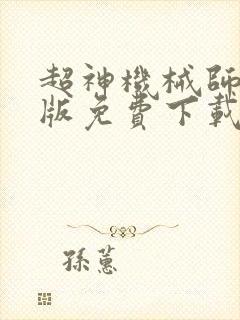 超神機械師
版免費下載
孫蕙